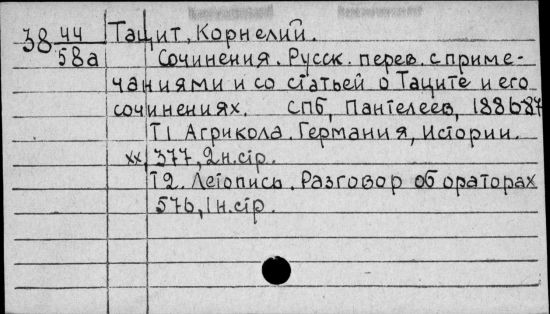 38 44/58а Тацит, Корнелий.
Сочинения. Русск. перев. с приме-
чаниями и со статьей о Таците и его
сочинениях. СПб, Пантелеев, 1886-87
Т1 Агрикола. Германия, Истории.
XX, 377, 2 н. стр.
Т2. Летопись. Разговор об ораторах
576, 1 н. стр.